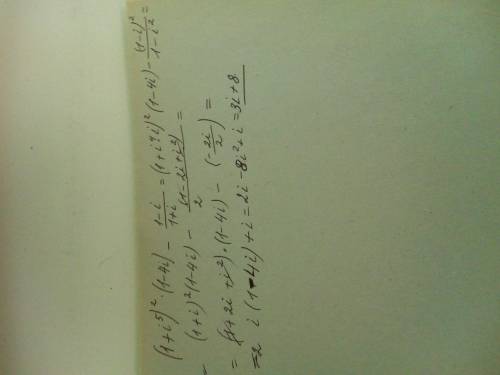 (1+i⁵)²·(1-4i) - (1-i)/(1+i) = (1+i⁴i)²(1-4i) - (1-i)²/(1-i²) =
= (1+i)²(1-4i) - (1-2i+i²)/2 =
= (1+2i+i²)·(1-4i) - (-2i/2) =
=2i(1-4i)+i=2i-8i²+i=3i+8